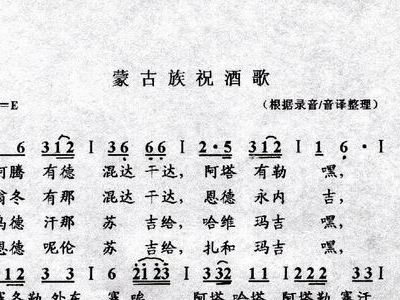 蒙古族祝酒歌
=E （根据录音/音译整理）
6 3 1 2 | 3 6 6 6 | 2·5 3 1 2 | 1 6· |
阿腾 有德 混达 干达， 阿塔 有勒 嘿，
翁冬 有那 混达 干达， 恩德 永内 吉，
乌德 汗那 苏 吉给， 哈维 玛吉 嘿，
恩德 呢伦 苏 吉给， 扎和 玛吉 嘿，
1 1 2 3 2 3 | 6 2 1 2 3 | 3 3 2 1 1 2 | 2 2 2 3 3 |
赛冬勒 外东 赛 哞 阿塔 哈塔 赛 赛汗